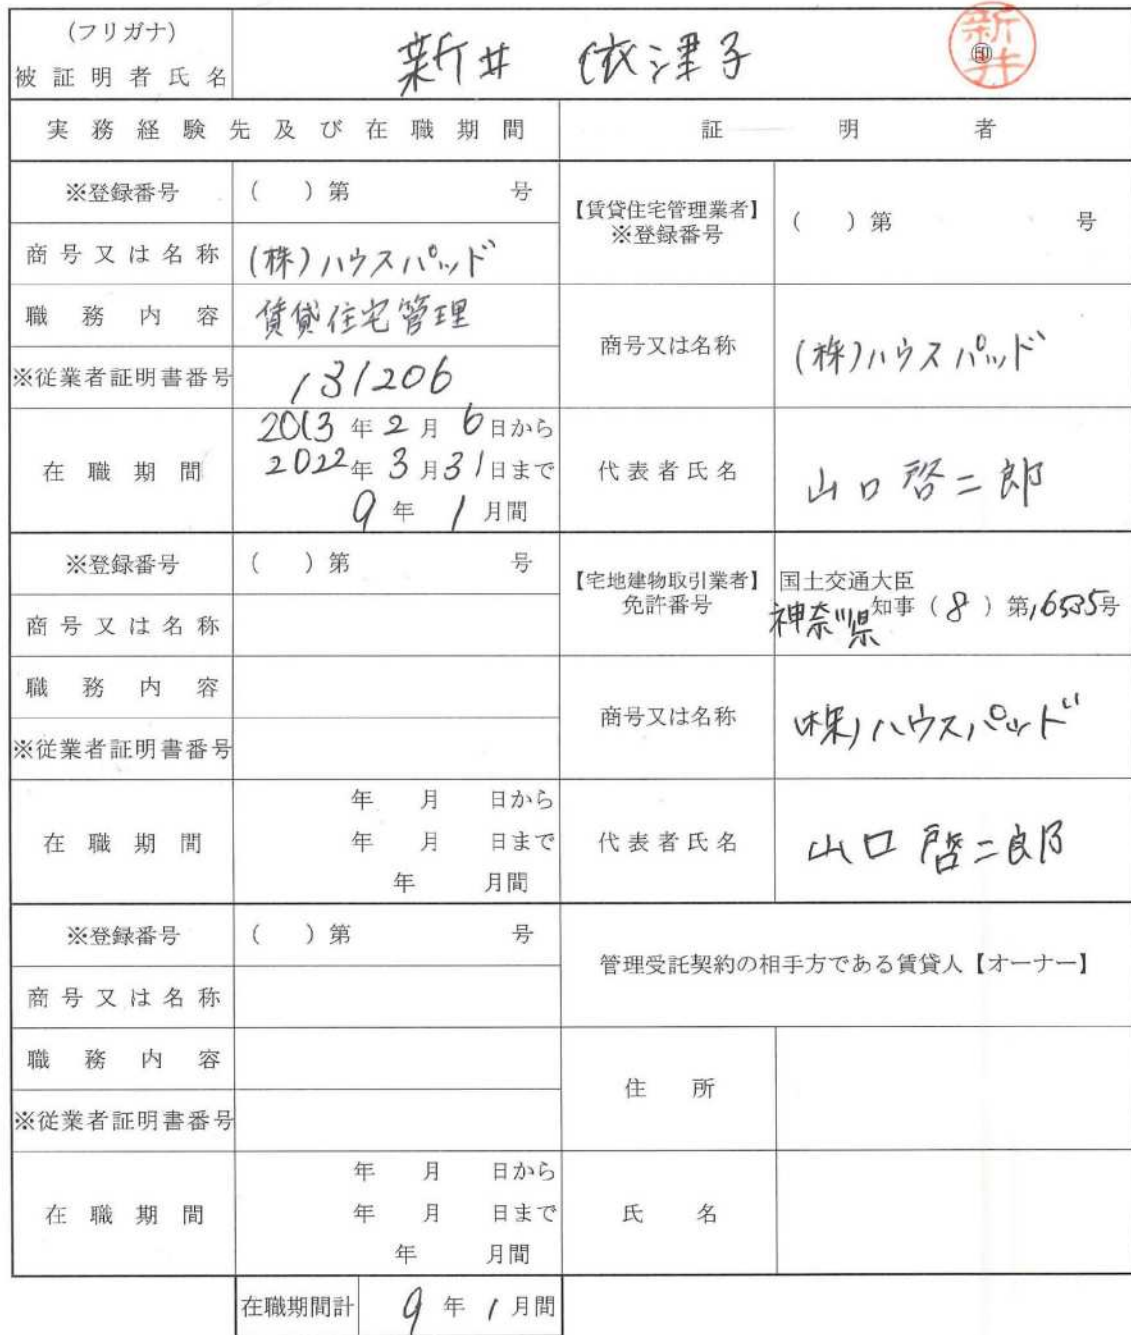 (フリガナ)
被証明者氏名
新井 依津子
新井
㊞
実務経験先及び在職期間
証明者
※登録番号
( )第 号
【賃貸住宅管理業者】
※登録番号
( )第 号
商号又は名称
(株)ハウスパッド
職務内容
賃貸住宅管理
商号又は名称
(株)ハウスパッド
※従業者証明書番号
131206
在職期間
2013年2月6日から
2022年3月31日まで
9年1月間
代表者氏名
山口啓二郎
※登録番号
( )第 号
【宅地建物取引業者】
免許番号
国土交通大臣
神奈川県知事(8)第16535号
商号又は名称
職務内容
商号又は名称
(株)ハウスパッド
※従業者証明書番号
在職期間
年 月 日から
年 月 日まで
年 月間
代表者氏名
山口啓二郎
※登録番号
( )第 号
管理受託契約の相手方である賃貸人【オーナー】
商号又は名称
職務内容
住所
※従業者証明書番号
在職期間
年 月 日から
年 月 日まで
年 月間
氏名
在職期間計
9年1月間